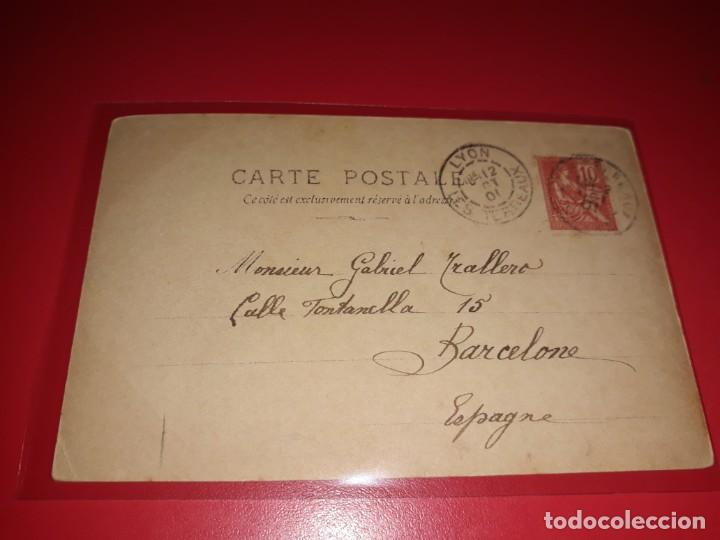 CARTE POSTALE
Ce côté est exclusivement réservé à l'adresse
LYON
12
01
LES TERREAUX
10
Monsieur Gabriel Trallero
Calle Fontanella 15
Barcelone
Espagne
todocoleccion.net